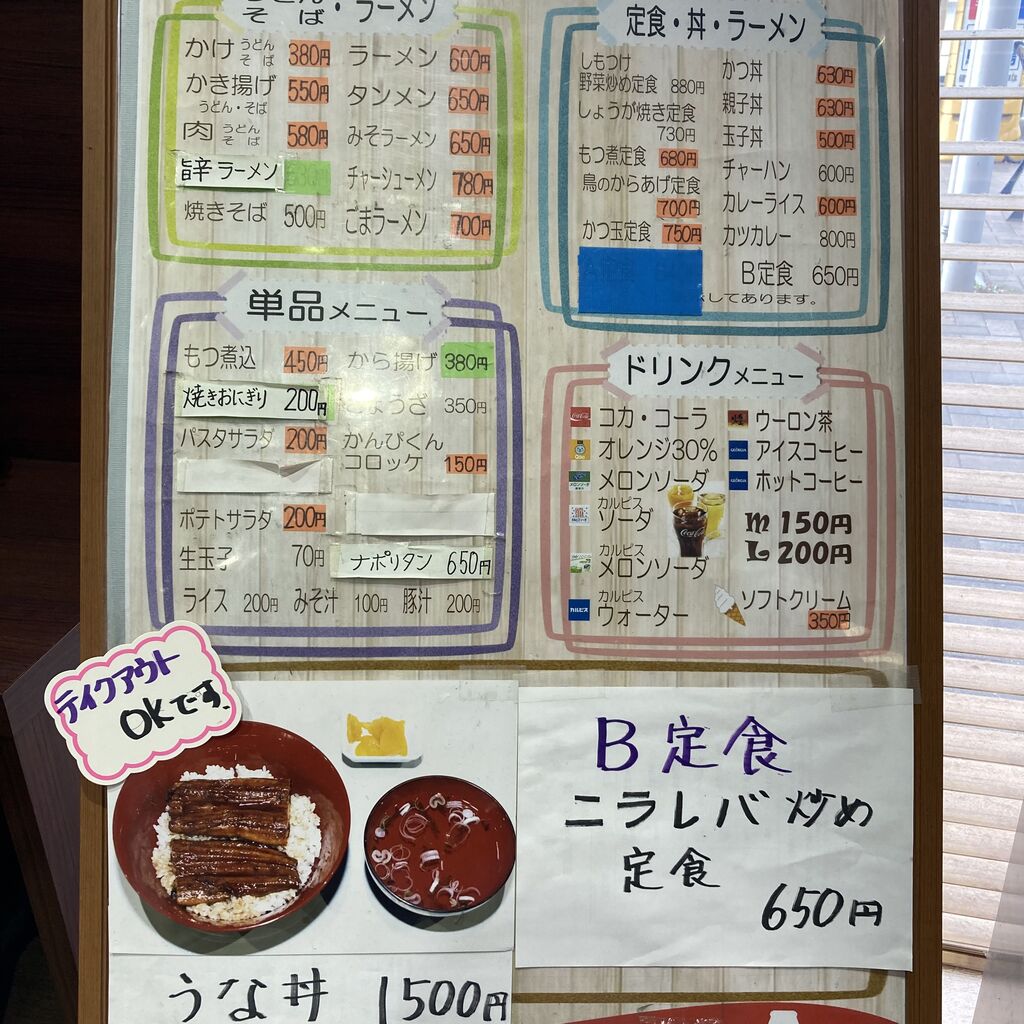 そば・ラーメン
かけ うどん そば 380円
かき揚げ うどん・そば 550円
肉 うどん そば 580円
旨辛ラーメン
焼きそば 500円
ラーメン 600円
タンメン 650円
みそラーメン 650円
チャーシューメン 780円
ごまラーメン 700円
定食・丼・ラーメン
しもつけ
野菜炒め定食 880円
しょうが焼き定食
730円
もつ煮定食 680円
鳥のからあげ定食
700円
かつ玉定食 750円
かつ丼 630円
親子丼 630円
玉子丼 500円
チャーハン 600円
カレーライス 600円
カツカレー 800円
B定食 650円
してあります。
単品メニュー
もつ煮込 450円
焼きおにぎり 200円
パスタサラダ 200円
ポテトサラダ 200円
生玉子 70円
から揚げ 380円
ぎょうざ 350円
かんぴくん
コロッケ 150円
ナポリタン 650円
ライス 200円 みそ汁 100円 豚汁 200円
ドリンクメニュー
コカ・コーラ
オレンジ30%
メロンソーダ
カルピス
ソーダ
カルピス
メロンソーダ
カルピス
ウォーター
ウーロン茶
アイスコーヒー
ホットコーヒー
M 150円
L 200円
ソフトクリーム
350円
テイクアウト
OKです。
うな丼 1500円
B定食
ニラレバ炒め
定食
650円